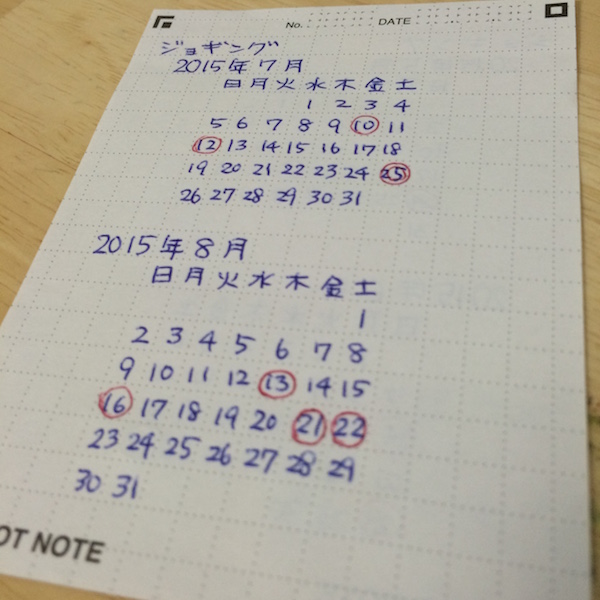 No. DATE
ジョギング
2015年7月
日月火水木金土
1 2 3 4
5 6 7 8 9 10 11
12 13 14 15 16 17 18
19 20 21 22 23 24 25
26 27 28 29 30 31
2015年8月
日月火水木金土
1
2 3 4 5 6 7 8
9 10 11 12 13 14 15
16 17 18 19 20 21 22
23 24 25 26 27 28 29
30 31
OT NOTE